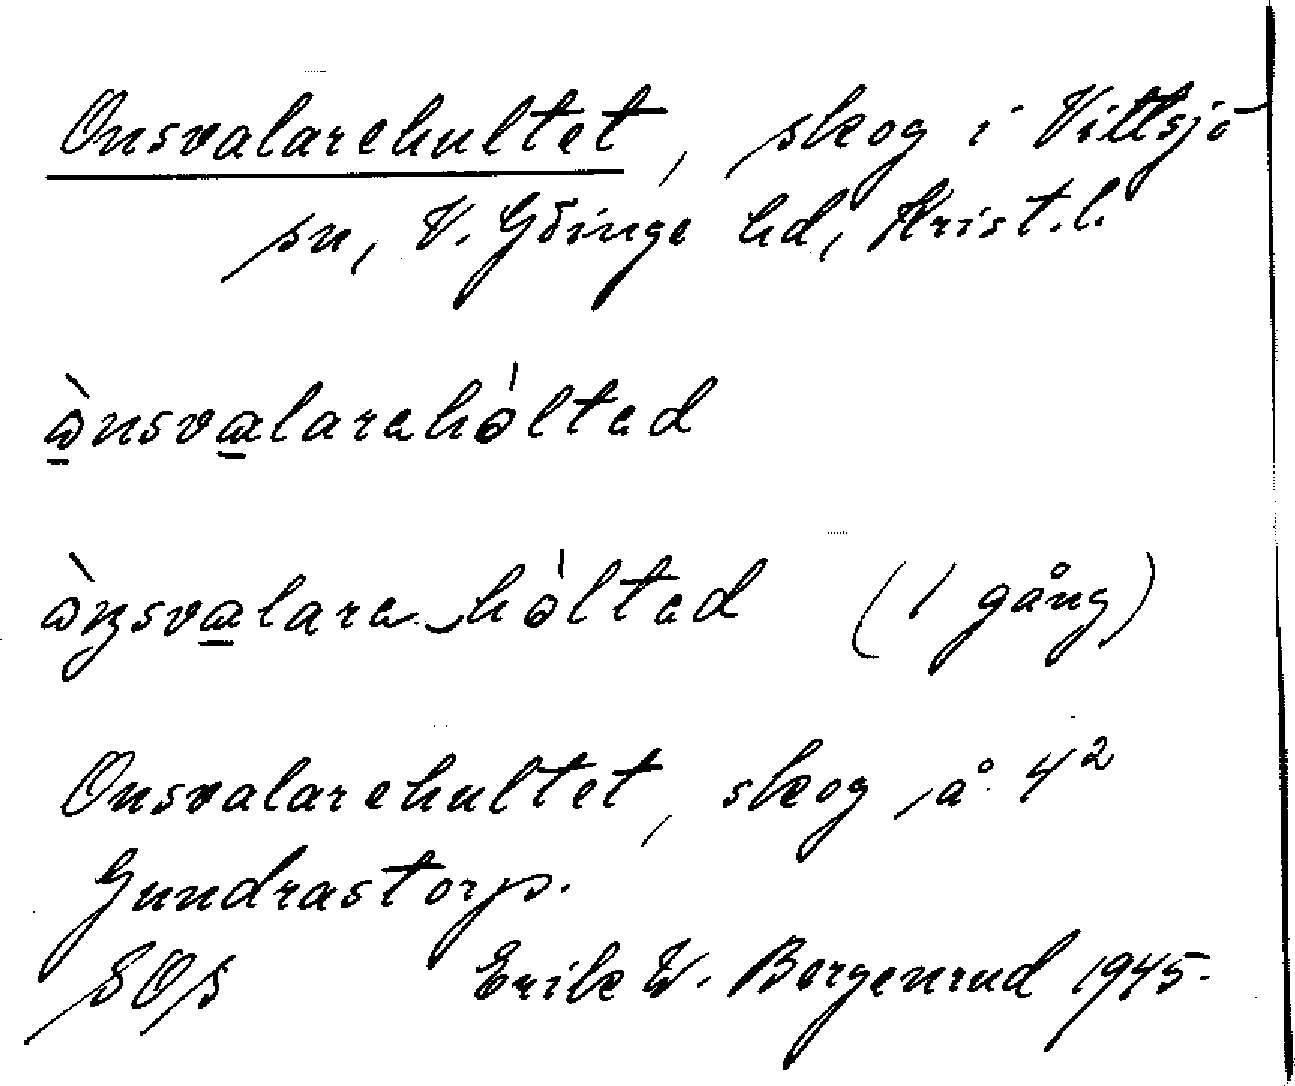 Onsvalarehultet, skog i Vittsjö
sn, V. Göinge hd, Krist.l.
ònsvalarehòlted
ònsvalare‿hòlted (1 gång)
Onsvalarehultet, skog på 4²
Gundrastorp.
SOS Erik W. Borgenrud 1945.